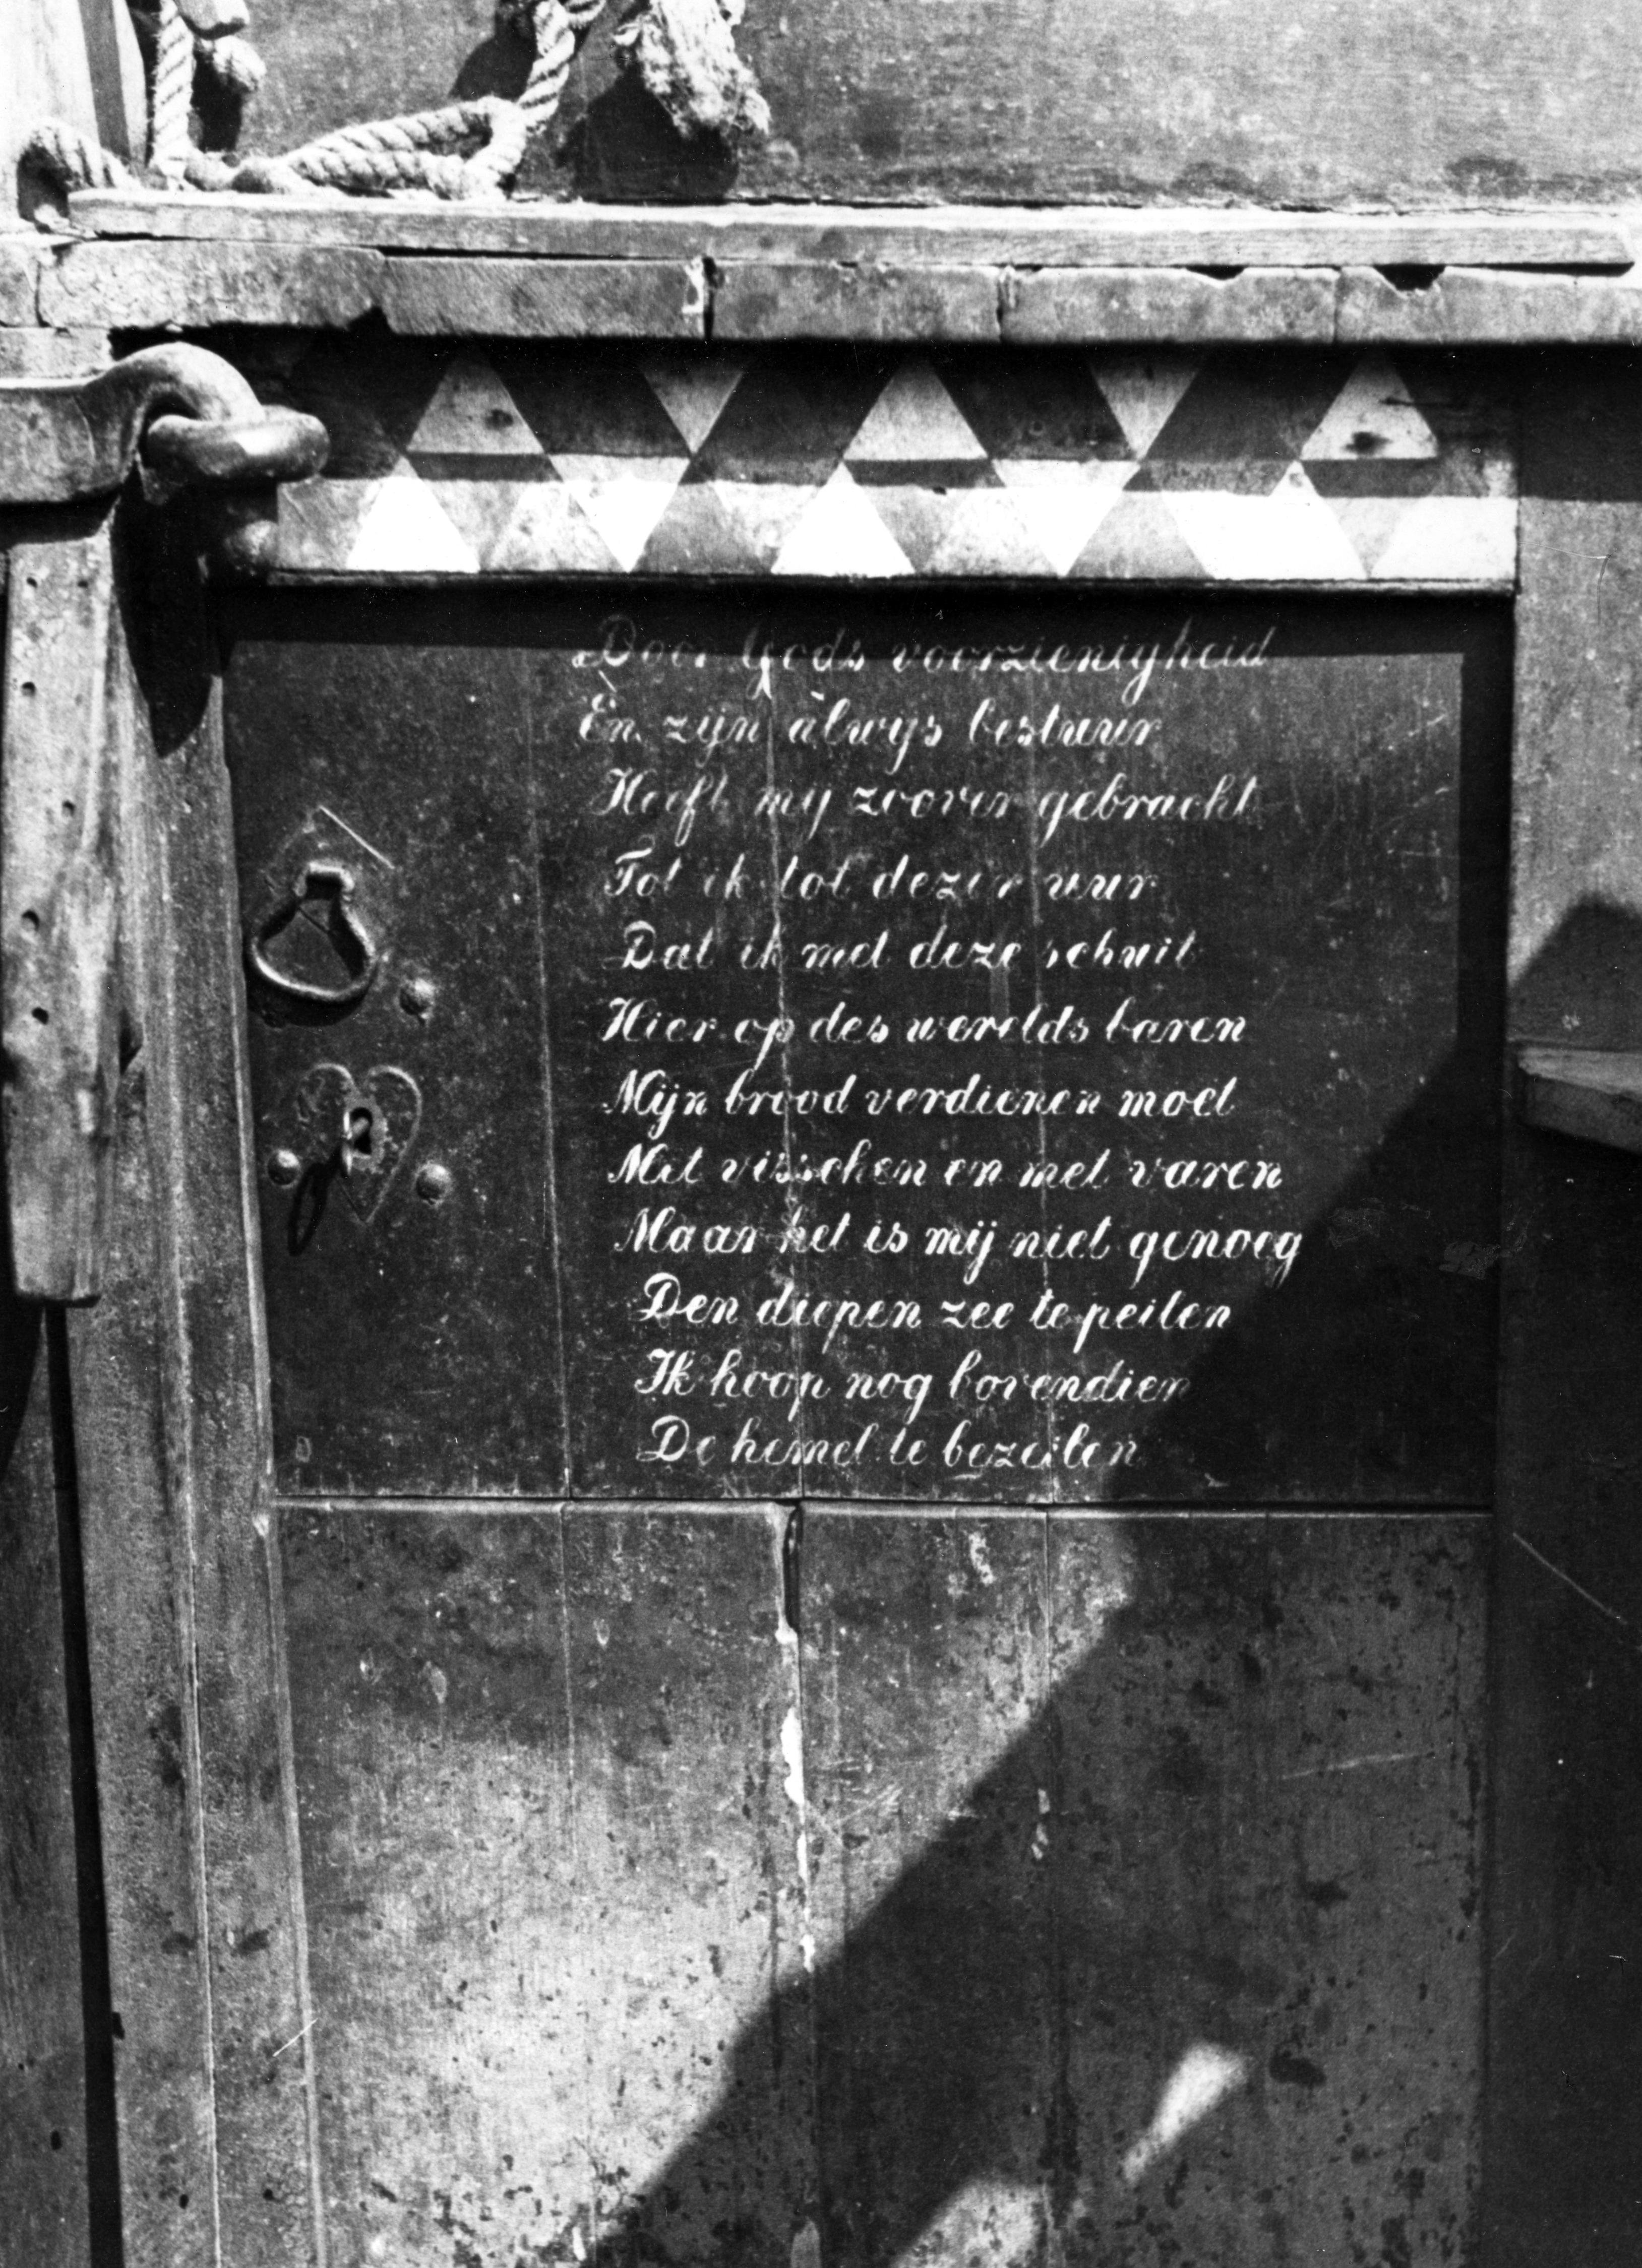 Door Gods voorzienigheid
En zijn alwijs bestuur
Heeft mij zoover gebracht
Tot ik tot dezer uur
Dat ik met deze schuit
Hier op des werelds baren
Mijn brood verdienen moet
Met visschen en met varen
Maar het is mij niet genoeg
Den diepen zee te peilen
Ik hoop nog bovendien
De hemel te bezeilen